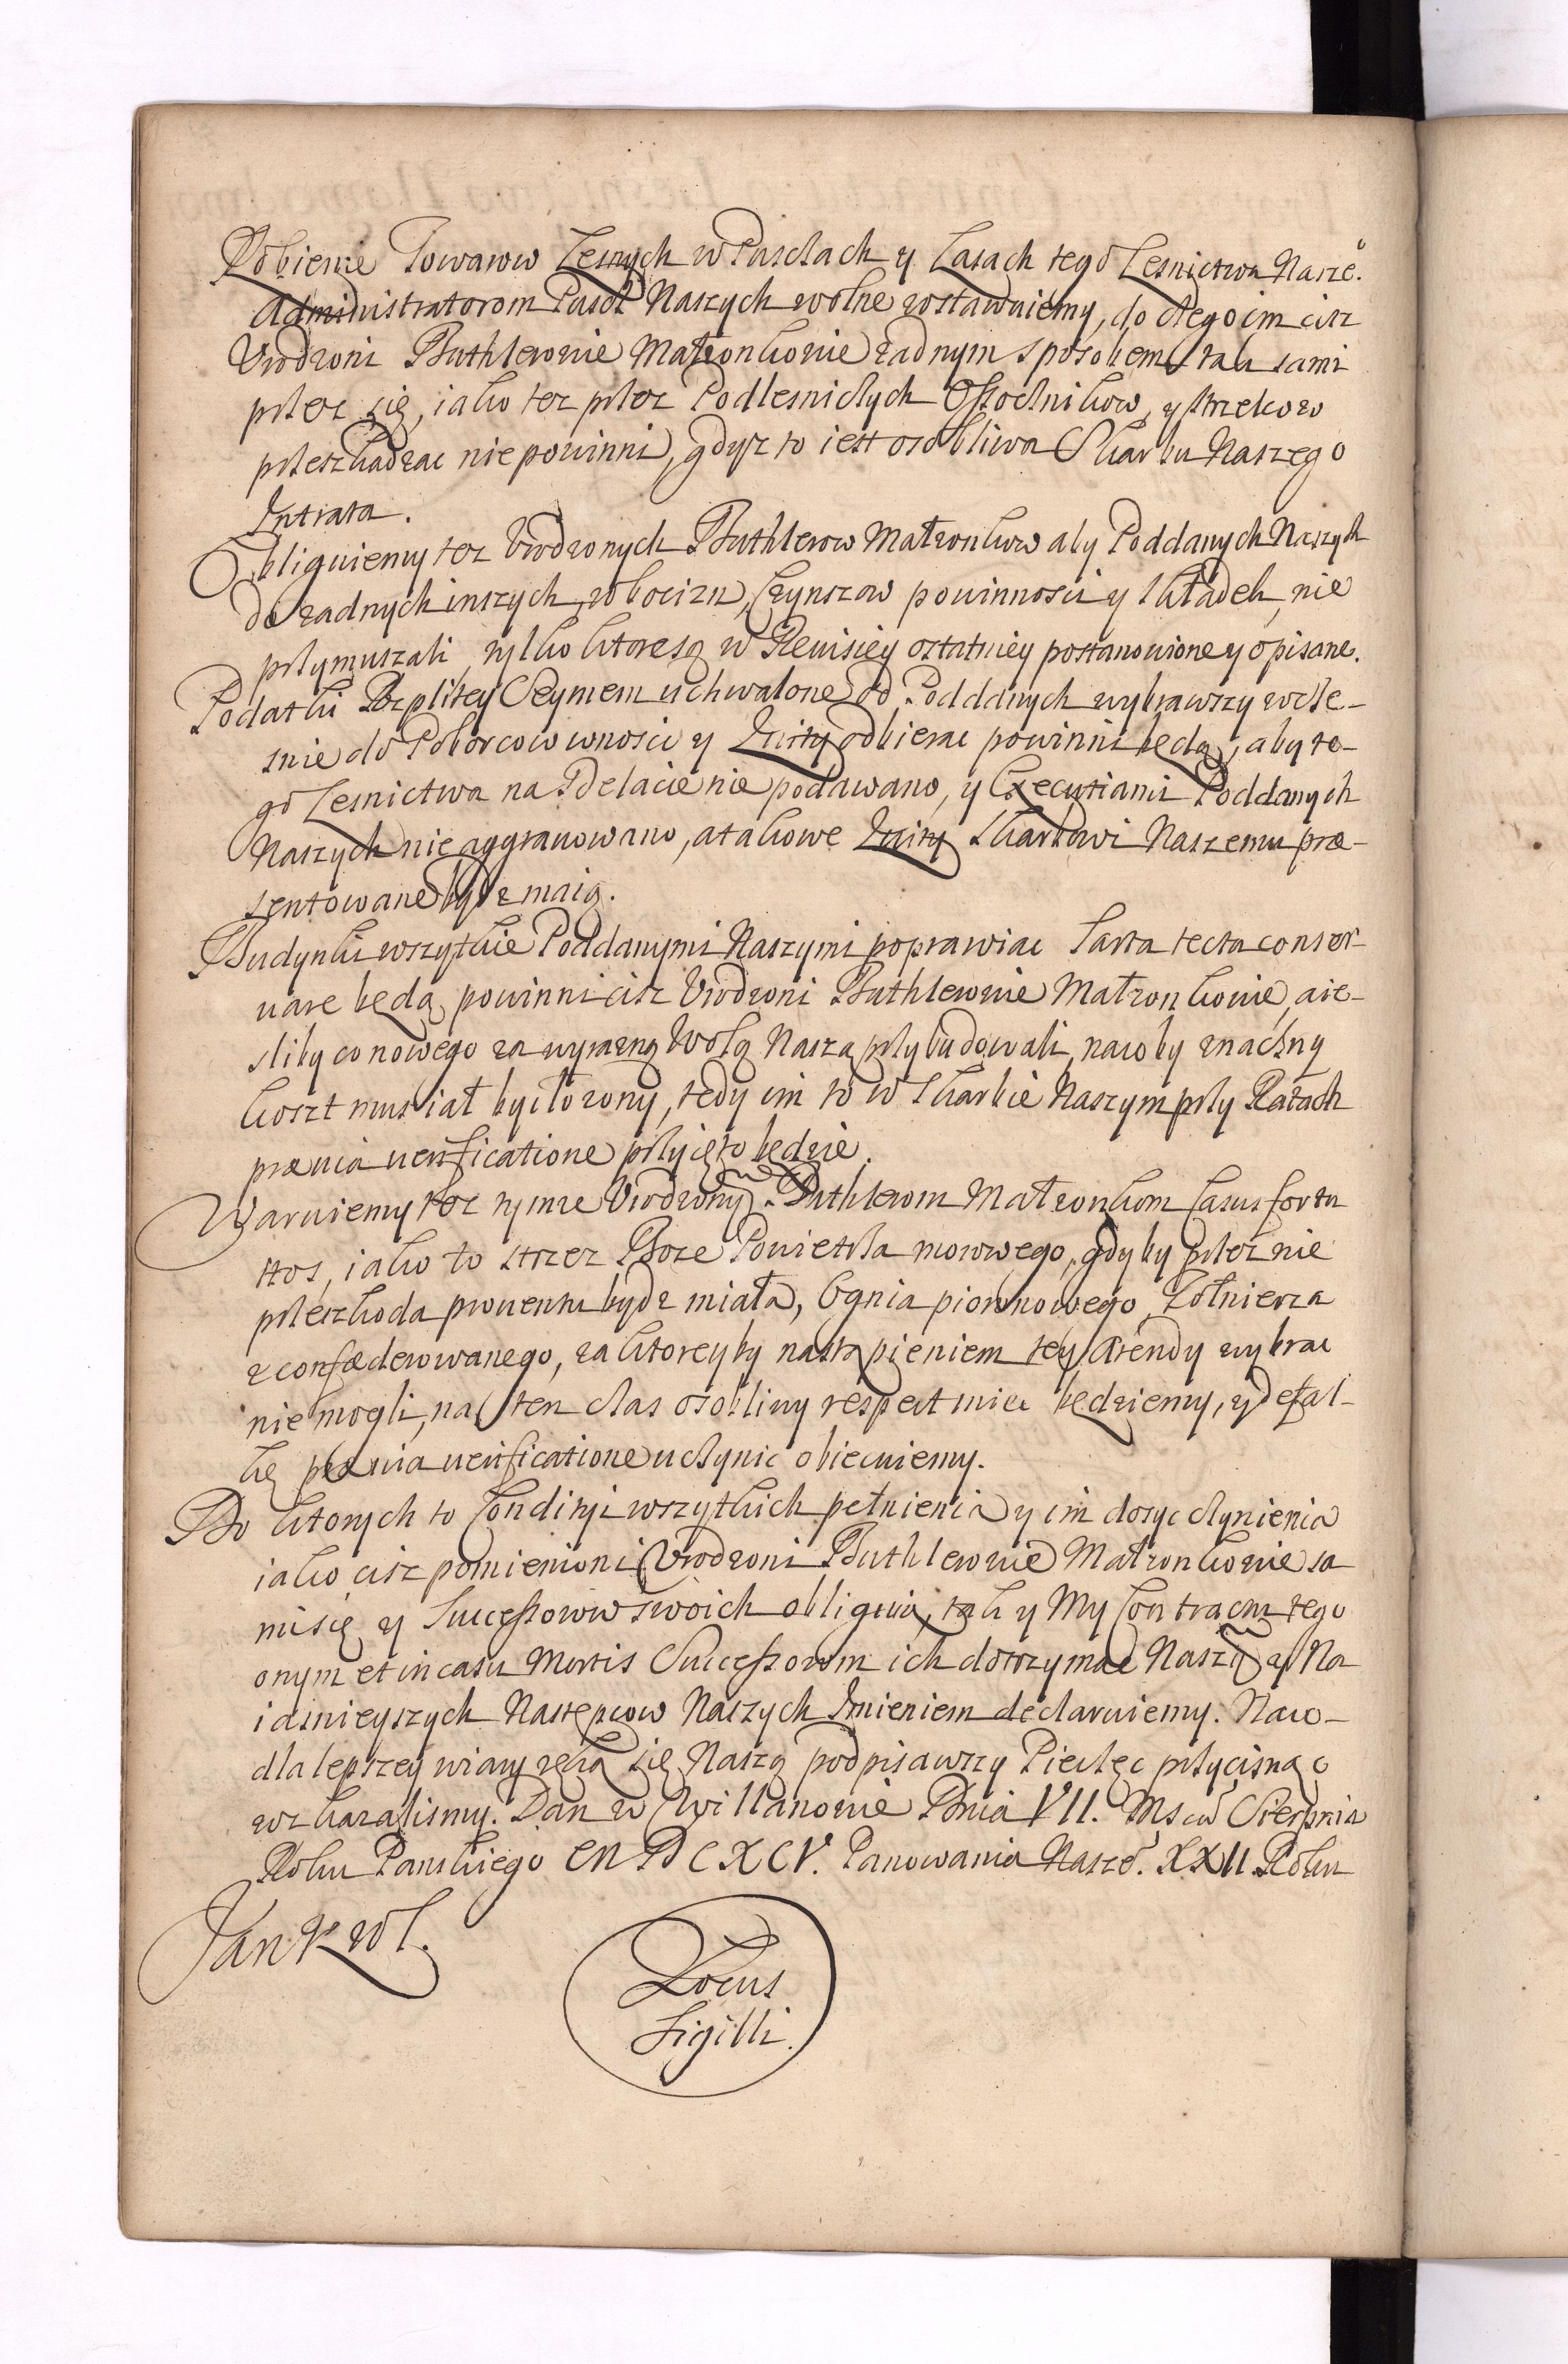 Robienie Towarow Lesnych w Pusczach y Lasach tego Lesnictwa Nasze°.
Administratorom Puscz Naszych wolne zostawuiemy, do czego im ciż
Vrodzoni Buthlerowie Małzonkowie zadnym sposobem tak sami
przez się, iako tez przez Podlesniczych Osocznikow, y strzelcow
przeszkadzac nie powinni, gdyz to iest osobliwa Skarbu Naszego
Intrata.
Obliguiemy tez Vrodzonych Buthlerow Małzonkow aby Poddanych Naszych
do zadnych inszych robocizn, Czynszow powinnosci y składek, nie
przymuszali, tylko ktore są w Rewisiey ostatniey postanowione y opisane.
Podatki Rzplitey Seymem uchwalone od Poddanych wybrawszy wcze-
snie do Poborcow wnosic y kwity odbierac powinni będą, aby te-
go Lesnictwa na Delacie nie podawano, y Executiami Poddanych
Naszych nie aggrauowano, a takowe kwity Skarbowi Naszemu præ-
sentowane bydz maią.
Budynki wszytkie Poddanymi Naszymi poprawiac Sarta tecta conser-
uare będą powinni ciż Vrodzoni Buthlerowie Małzonkowie, a ie-
sliby co nowego za wyrazną Wolą Naszą przybudowali, na coby znaczny
koszt musiał byc łozony, tedy im to w Skarbie Naszym przy Ratach
præuia uerificatione przyięto będzie.
Waruiemy tez tymze Vrodzonym Buthlerom Małzonkom Casus fortu
itos, iako to strzez Boze Powietrza morowego, gdyby przez nie
przeszkoda prouentu bydz miała, Ognia piorunowego, Zołnierza
zconfæderowanego, za ktoreyby nastąpieniem tey Arendy wybrac
nie mogli, na ten czas osobliwy respect miec będziemy, y defal-
kę præuia uerificatione uczynic obiecuiemy.
Do ktorych to Conditiy wszytkich pełnienia y im dosyc czynienia
iako ciż pomienioni Vrodzoni Buthlerowie Małzonkowie sa
mi się y Successorow swoich obliguią, tak y My Contract tego
onym et in casu Mortis Successorom ich dotrzymac Naszym y Na
iasnieyszych Następcow Naszych Imieniem declaruiemy. Na co-
dla lepszey wiary ręką się Naszą podpisawszy Pieczęc przycisnąc
rozkazalismy. Dan w Willanowie Dnia VII. Mscã Sierpnia
Roku Panskiego MDCXCV. Panowania Nasze°. XXII. Roku
Jan Krol.
Locus
Sigilli.